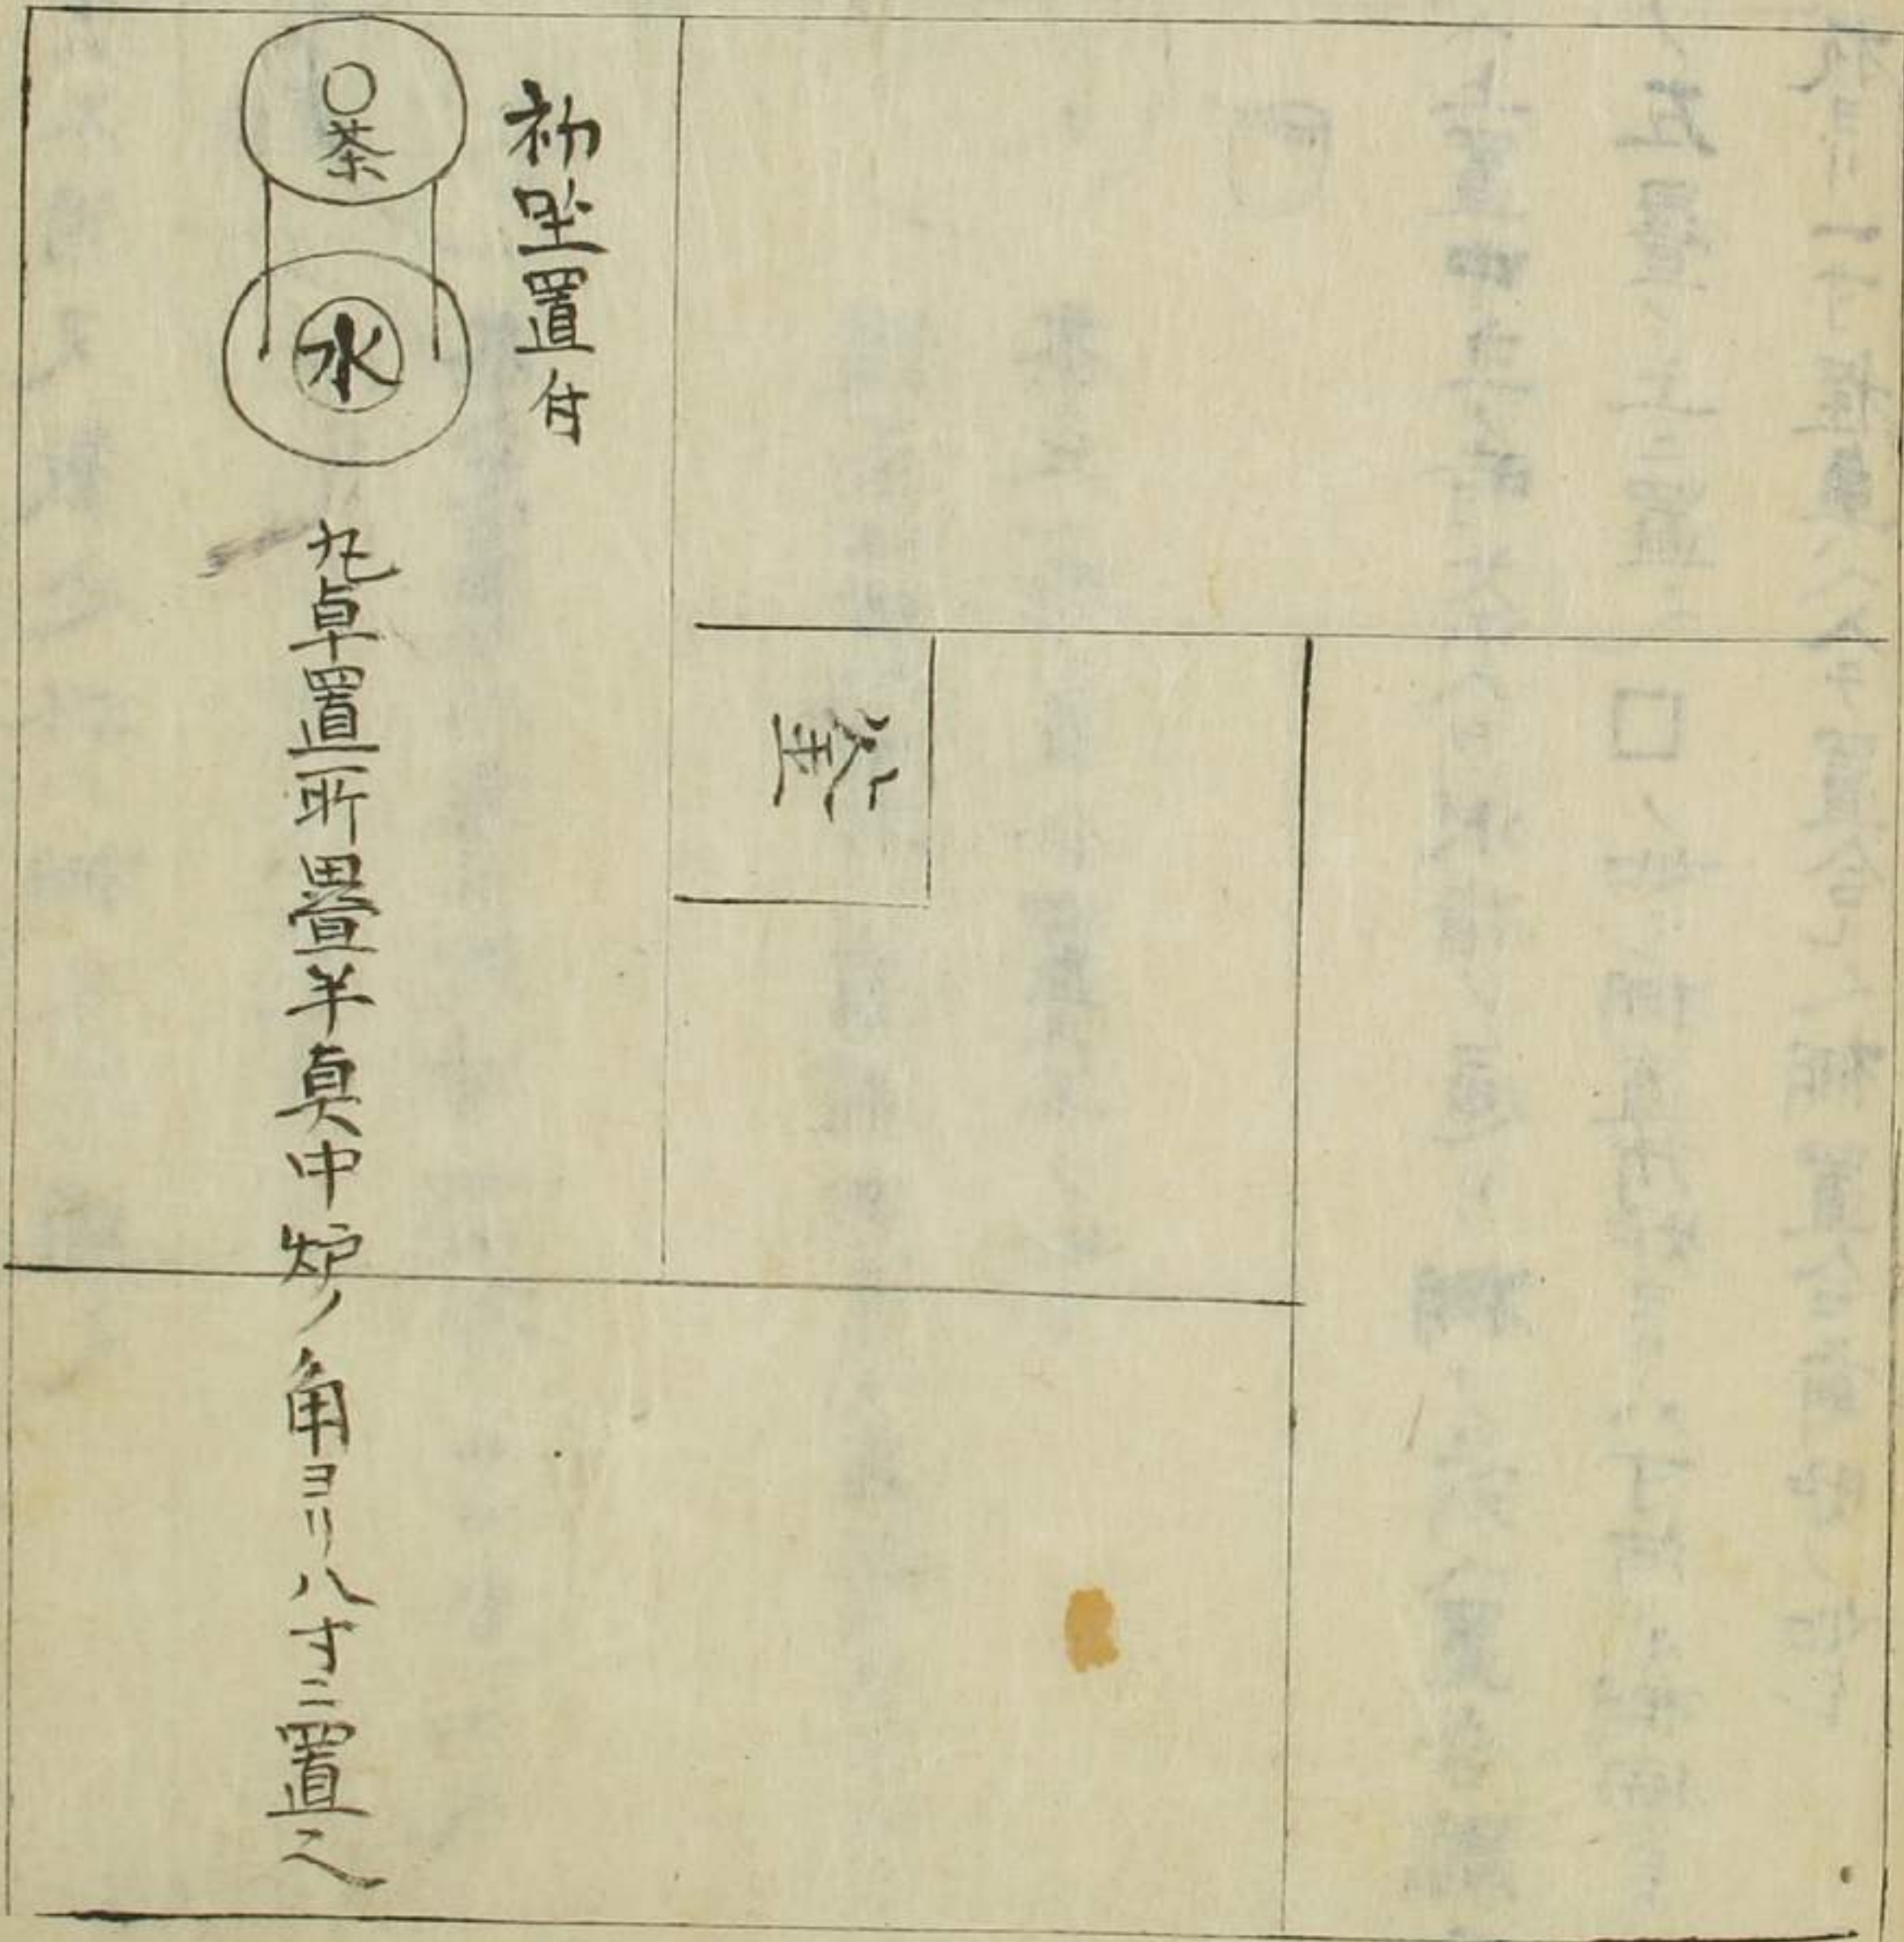 初坐置付
〇茶
水
丸卓置所畳半真中炉ノ角ヨリ八寸ニ置之
釜